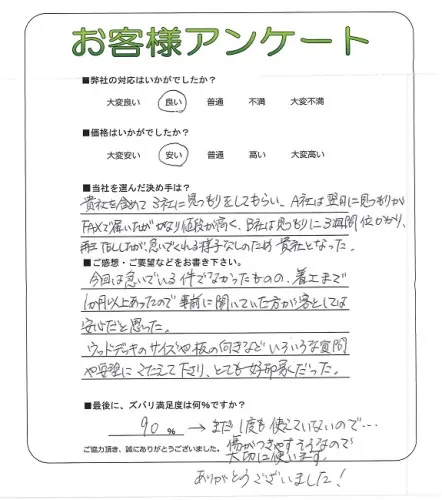 お客様アンケート
■弊社の対応はいかがでしたか?
大変良い 良い 普通 不満 大変不満
■価格はいかがでしたか?
大変安い 安い 普通 高い 大変高い
■当社を選んだ決め手は?
貴社を含めて3社に見つもりをしてもらい、A社は翌日に見つもりが
FAXで届いたがかなり値段が高く、B社は見つもりに3週間位かかり、
再TELしたが、急いでくれる様子なしのため貴社となった。
■ご感想・ご要望などをお書き下さい。
今回は急いでいる件でなかったものの、着工まで
1か月以上あったので事前に聞いていた方が客としては
安心だと思った。
ウッドデッキのサイズや板の向きなどいろいろな質問
や要望にこたえて下さり、とても好印象だった。
■最後に、ズバリ満足度は何%ですか?
90 % → まだ1度も使えていないので…
傷がつきやすそうなので
大切に使います。
ご協力頂き、誠にありがとうございました。
ありがとうございました!